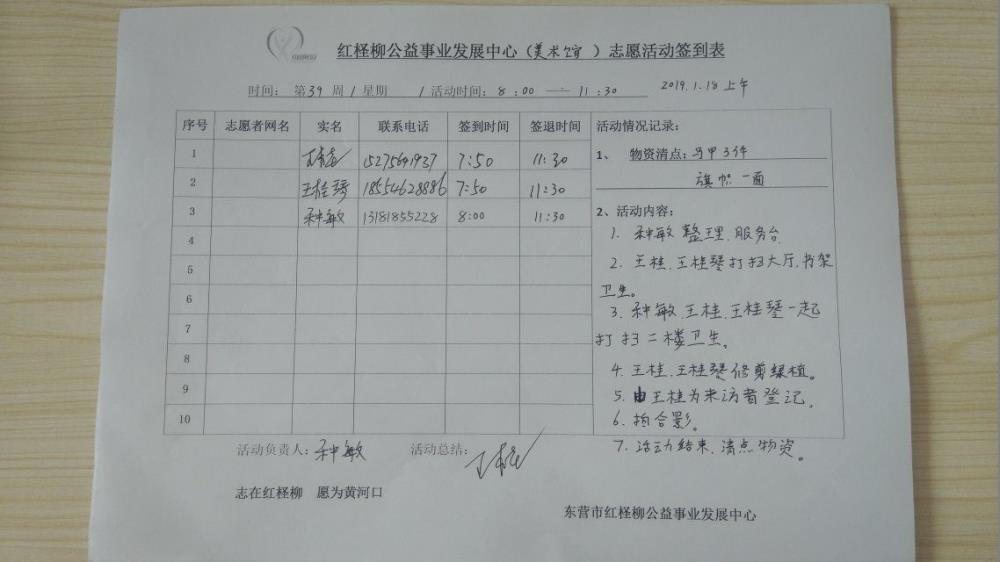 红柽柳公益事业发展中心（美术馆）志愿活动签到表
时间： 第39周/星期 / 活动时间：8：00 — 11：30 2019.1.18上午
序号 志愿者网名 实名 联系电话 签到时间 签退时间 活动情况记录：
1 15275641937 7:50 11:30
1、 物资清点：马甲3件
旗帜一面
2 王桂琴 18554628886 7:50 11:30
3 种敏 13181855228 8:00 11:30
2、活动内容：
1. 种敏整理.服务台.
2. 王桂.王桂琴打扫大厅.书架
卫生。
3. 种敏.王桂.王桂琴一起
打扫二楼卫生。
4. 王桂.王桂琴修剪绿植。
5. 由王桂为来访者登记.
6. 拍合影.
7. 活动结束.清点物资。
4
5
6
7
8
9
10
活动负责人：种敏 活动总结：
志在红柽柳 愿为黄河口
东营市红柽柳公益事业发展中心